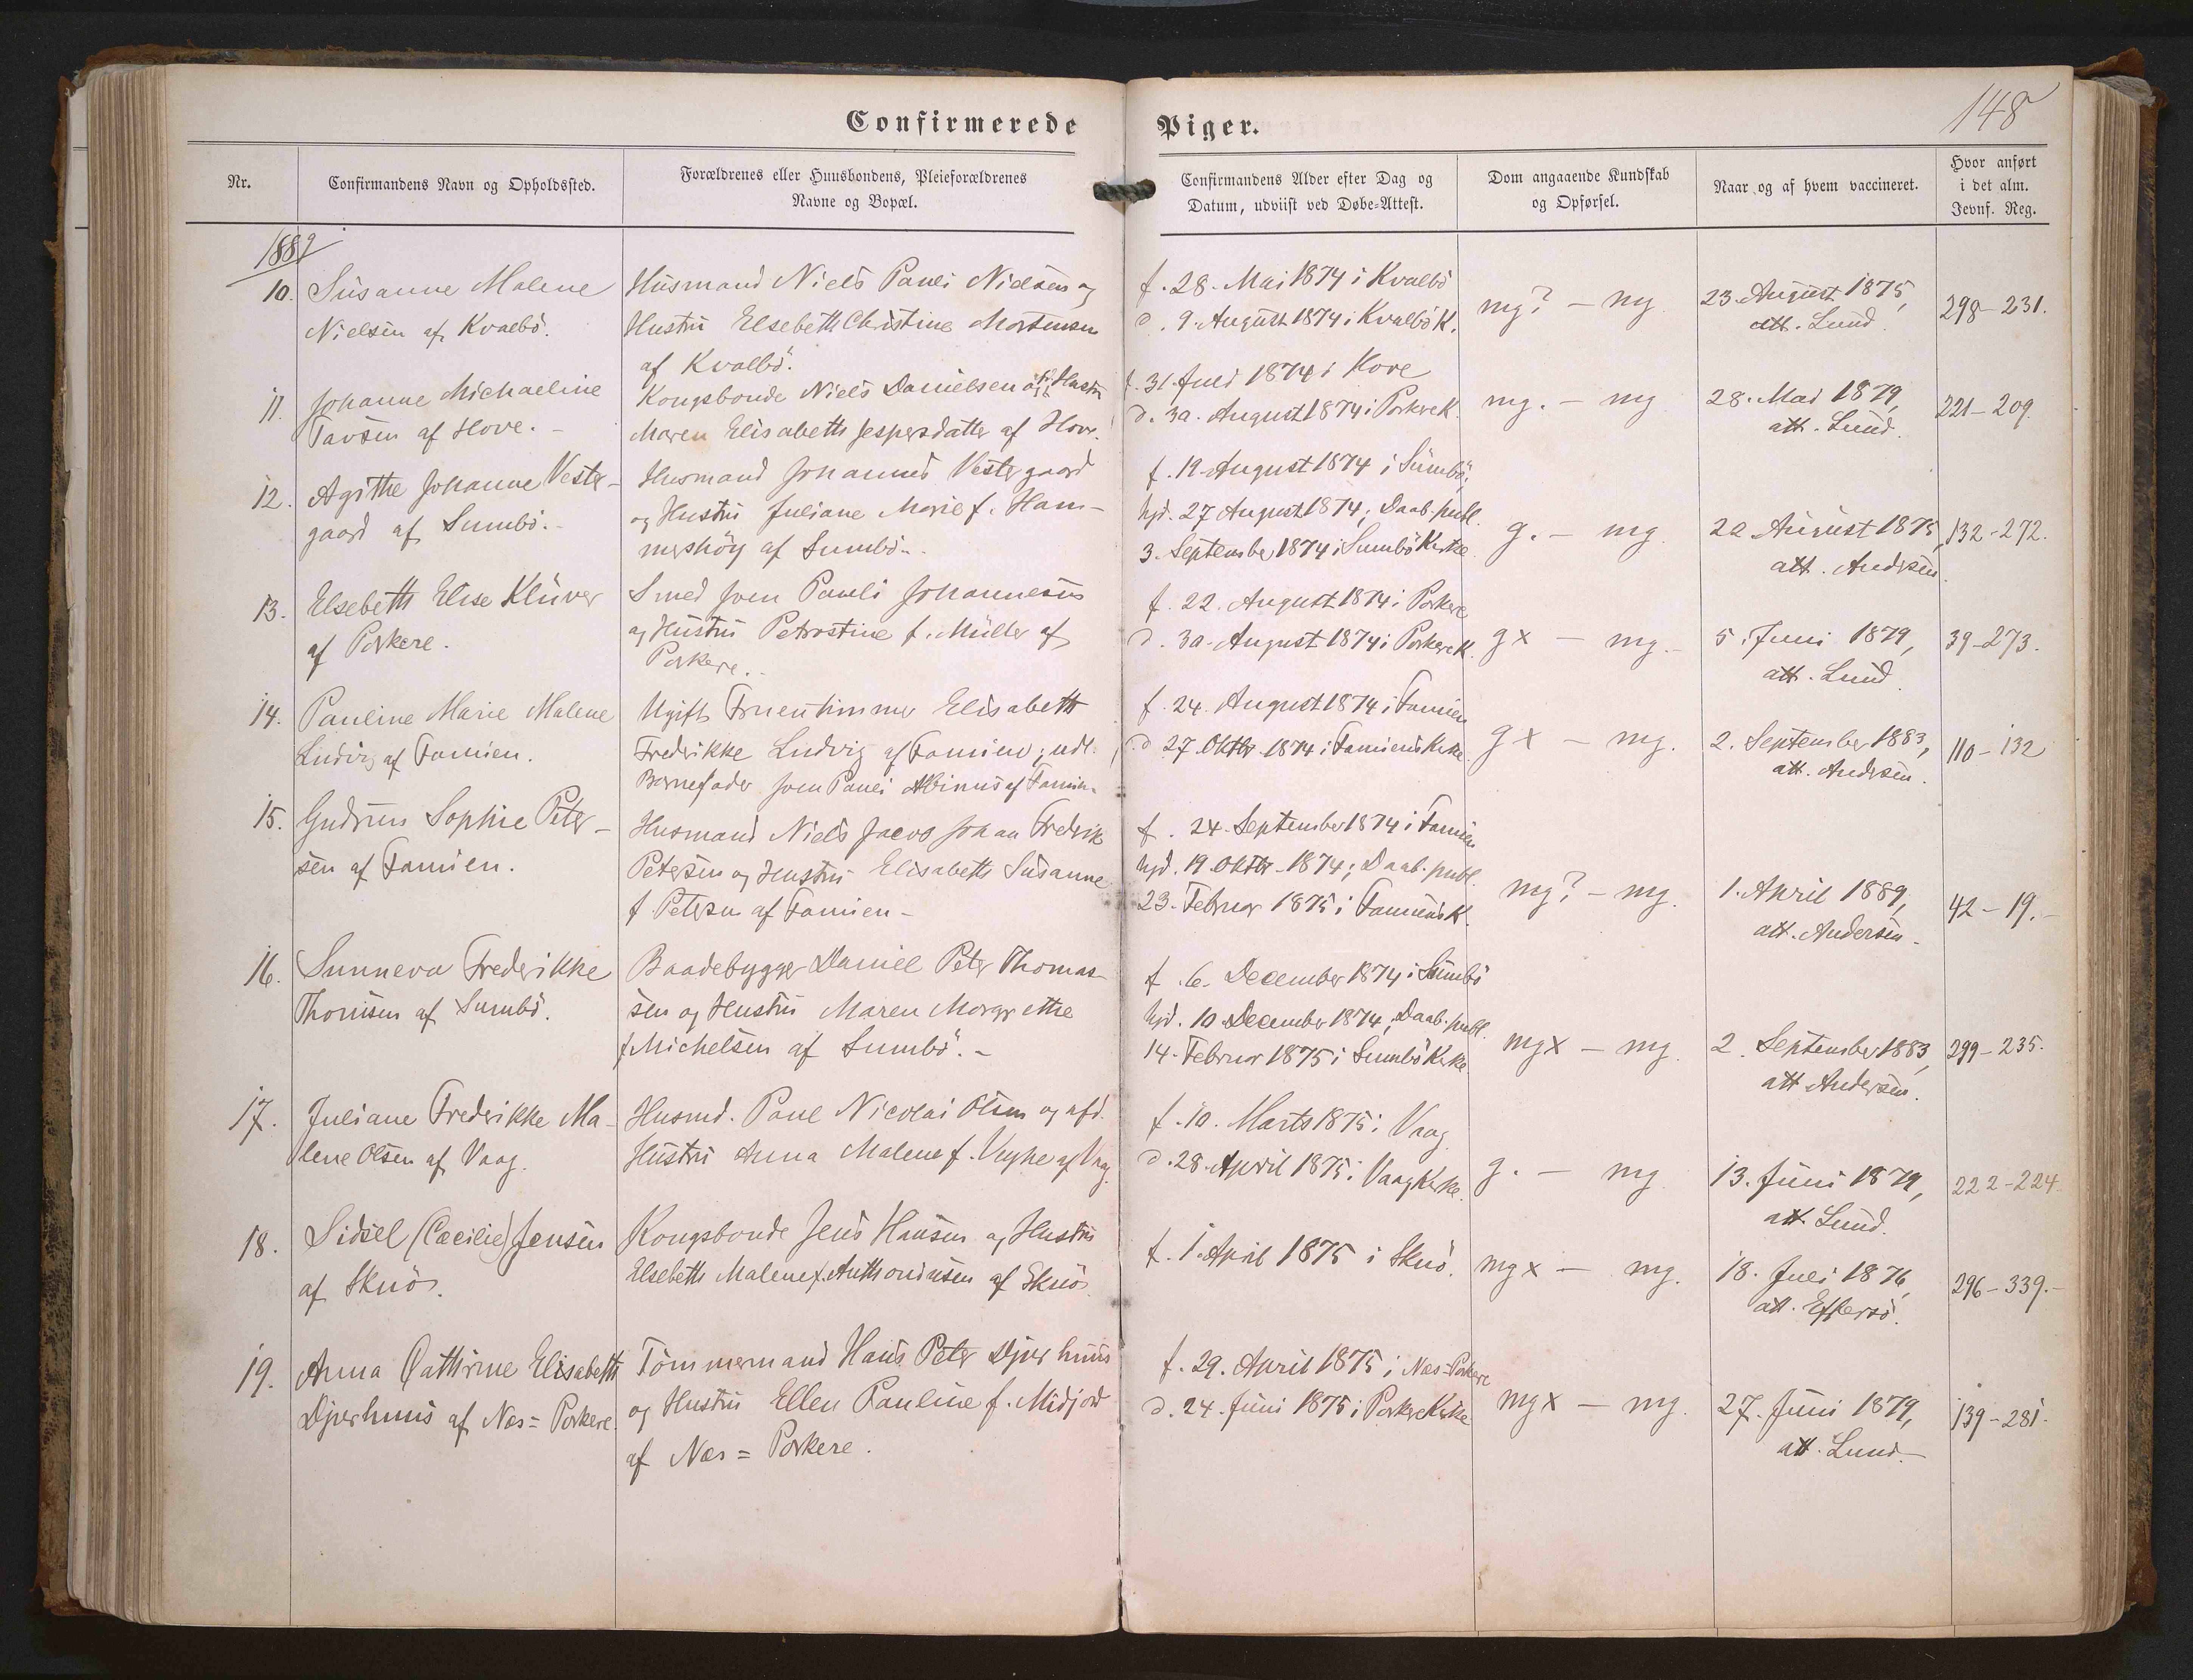 Confirmerede Piger.
148
Nr.
Confirmandens Navn og Opholdssted.
Forældrenes eller Huusbondens, Pleieforældrenes
Navne og Bopæl.
Confirmandens Alder efter Dag og
Datum, udviist ved Døbe-Attest.
Dom angaaende Kundskab
og Opførsel.
Naar og af hvem vaccineret.
Hvor anført
i det alm.
Jevnf. Reg.
1889
10. Susanne Malene
Nielsen af Kvalbö.
Husmand Niels Pauli Nielsen og
Hustru Elsebeth Christine Mortensen
af Kvalbö.
f. 28. Mai 1874 i Kvalbö
d. 9. August 1874 i Kvalbö K.
mg? – mg.
23. August 1875,
att. Lund.
298–231.
11. Johanne Michaeline
Tavsen af Hove. –
Kongsbonde Niels Danielsen og Hustru
Maren Elisabeth Jespersdatter af Hove.
f. 31. Juli 1874 i Hove
d. 30. August 1874 i Porkere K.
mg. – mg.
28. Mai 1879,
att. Lund.
221–209.
12. Agithe Johanne Vester-
gaard af Sumbö. –
Husmand Johannes Vestergaard
og Hustru Juliane Marie f. Ham-
mershöy af Sumbö. –
f. 19. August 1874 i Sumbö;
hjd. 27 August 1874; Daab. publ.
3. September 1874 i Sumbö Kirke.
g. – mg.
22 August 1875,
att. Andersen.
132–272.
13. Elsebeth Elise Klüver
af Porkere.
Smed Joen Pauli Johannesen
og Hustru Petrostine f. Müller af
Porkere.
f. 22. August 1874 i Porkere
d. 30. August 1874 i Porkere K.
g x – mg. –
5. Juni 1879,
att. Lund.
39–273.
14. Pauline Marie Malene
Ludvig af Famien.
Ugift Fruentimmer Elisabeth
Frederikke Ludvig af Famien; udl.
Barnefader Joen Pauli Albinus af Famien.
f. 24. August 1874 i Famien
d. 27. Oktbr. 1874 i Famiens Kirke.
g x – mg.
2. September 1883,
att. Andersen.
110–132
15. Gudrun Sophie Peter-
sen af Famien.
Husmand Niels Jacob Johan Fredrik
Petersen og Hustru Elisabeth Susanne
f. Petersen af Famien –
f. 24. September 1874 i Famien
hjd. 19. Oktbr. 1874; Daab. publ.
23. Februar 1875 i Famiens K.
mg? – mg.
1. April 1889,
att. Andersen.
42–19. –
16. Sunneva Frederikke
Thomsen af Sumbö.
Baadebygger Daniel Peter Thomas-
sen og Hustru Maren Margrethe
f. Michelsen af Sumbö. –
f. 6. December 1874 i Sumbö
hjd. 10 December 1874, Daab. publ.
14. Februar 1875 i Sumbö Kirke.
mg x – mg.
2. September 1883,
att. Andersen.
299–235.
17. Juliane Frederikke Ma-
lene Olsen af Vaag.
Husmd. Poul Nicolai Olsen og afd.
Hustru Anna Malene f. Veyhe af Vaag.
f. 10. Marts 1875 i Vaag.
d. 28. April 1875 i Vaag Kirke.
g. – mg.
13. Juni 1879,
att. Lund.
222–224.
18. Sidsel (Cæcilie) Jensen
af Skuö.
Kongsbonde Jens Hansen og Hustru
Elsebeth Malene f. Anthoniussen af Skuö.
f. 1. April 1875 i Skuö.
mg x – mg.
18. Juli 1876,
att. Effersö.
296–339. –
19. Anna Cathrine Elisabeth
Djurhuus af Næs = Porkere.
Tömmermand Hans Peter Djurhuus
og Hustru Ellen Pauline f. Midjord
af Næs = Porkere.
f. 29. April 1875 i Næs = Porkere
d. 24. Juni 1875 i Porkere Kirke
mg x – mg.
27. Juni 1879,
att. Lund. –
139–281.